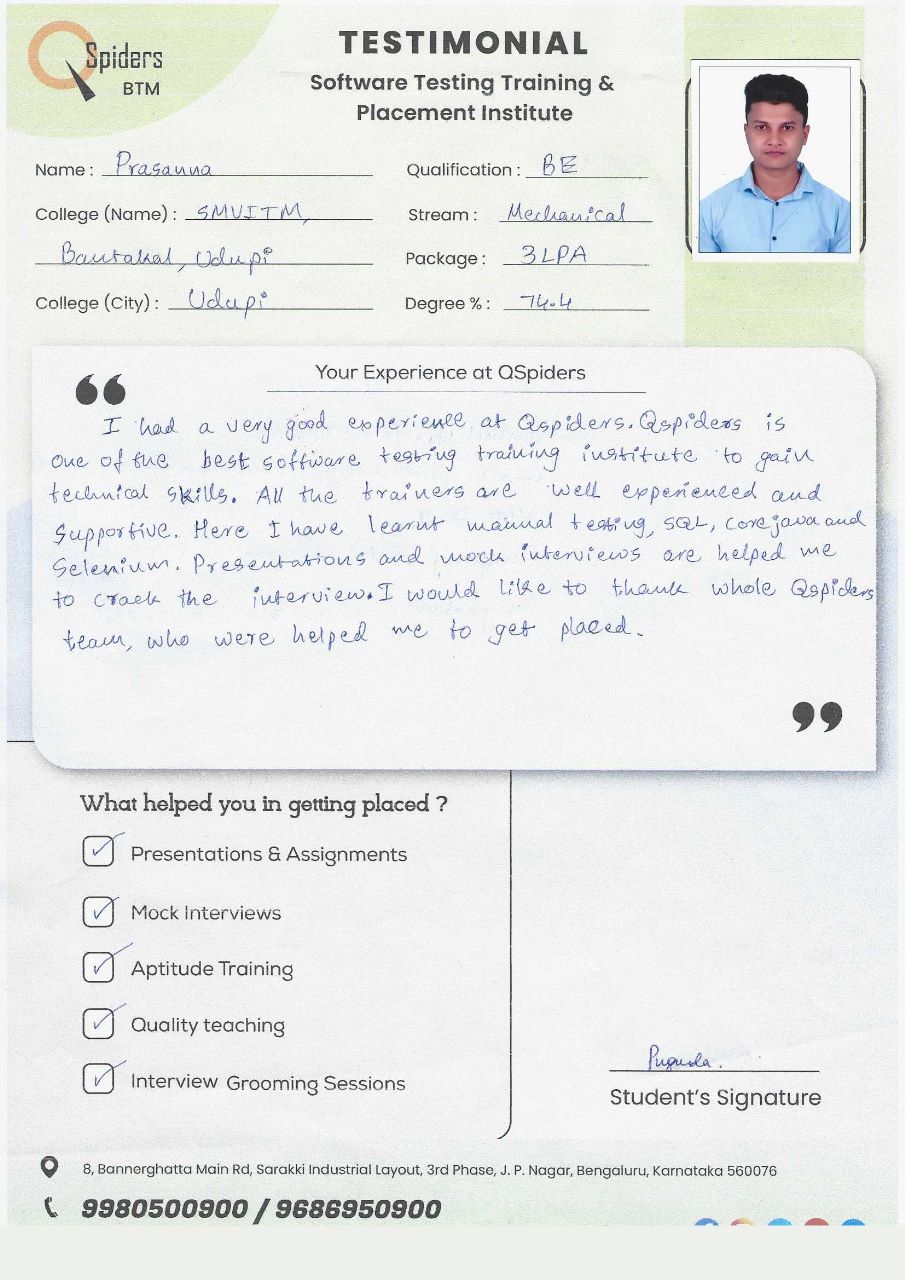 QSpiders
BTM
TESTIMONIAL
Software Testing Training &
Placement Institute
Name : Prasanna
Qualification : BE
College (Name) : SMVITM,
Stream : Mechanical
Bantakal, Udupi
Package : 3LPA
College (City) : Udupi
Degree % : 74.4
Your Experience at QSpiders
“
I had a very good experience at Qspiders. Qspiders is
one of the best software testing training institute to gain
technical skills. All the trainers are well experienced and
supportive. Here I have learnt manual testing, SQL, core java and
Selenium. Presentations and mock interviews are helped me
to crack the interview. I would like to thank whole Qspiders
team, who were helped me to get placed.
”
What helped you in getting placed ?
Presentations & Assignments
Mock Interviews
Aptitude Training
Quality teaching
Interview Grooming Sessions
Student's Signature
8, Bannerghatta Main Rd, Sarakki Industrial Layout, 3rd Phase, J. P. Nagar, Bengaluru, Karnataka 560076
9980500900 / 9686950900